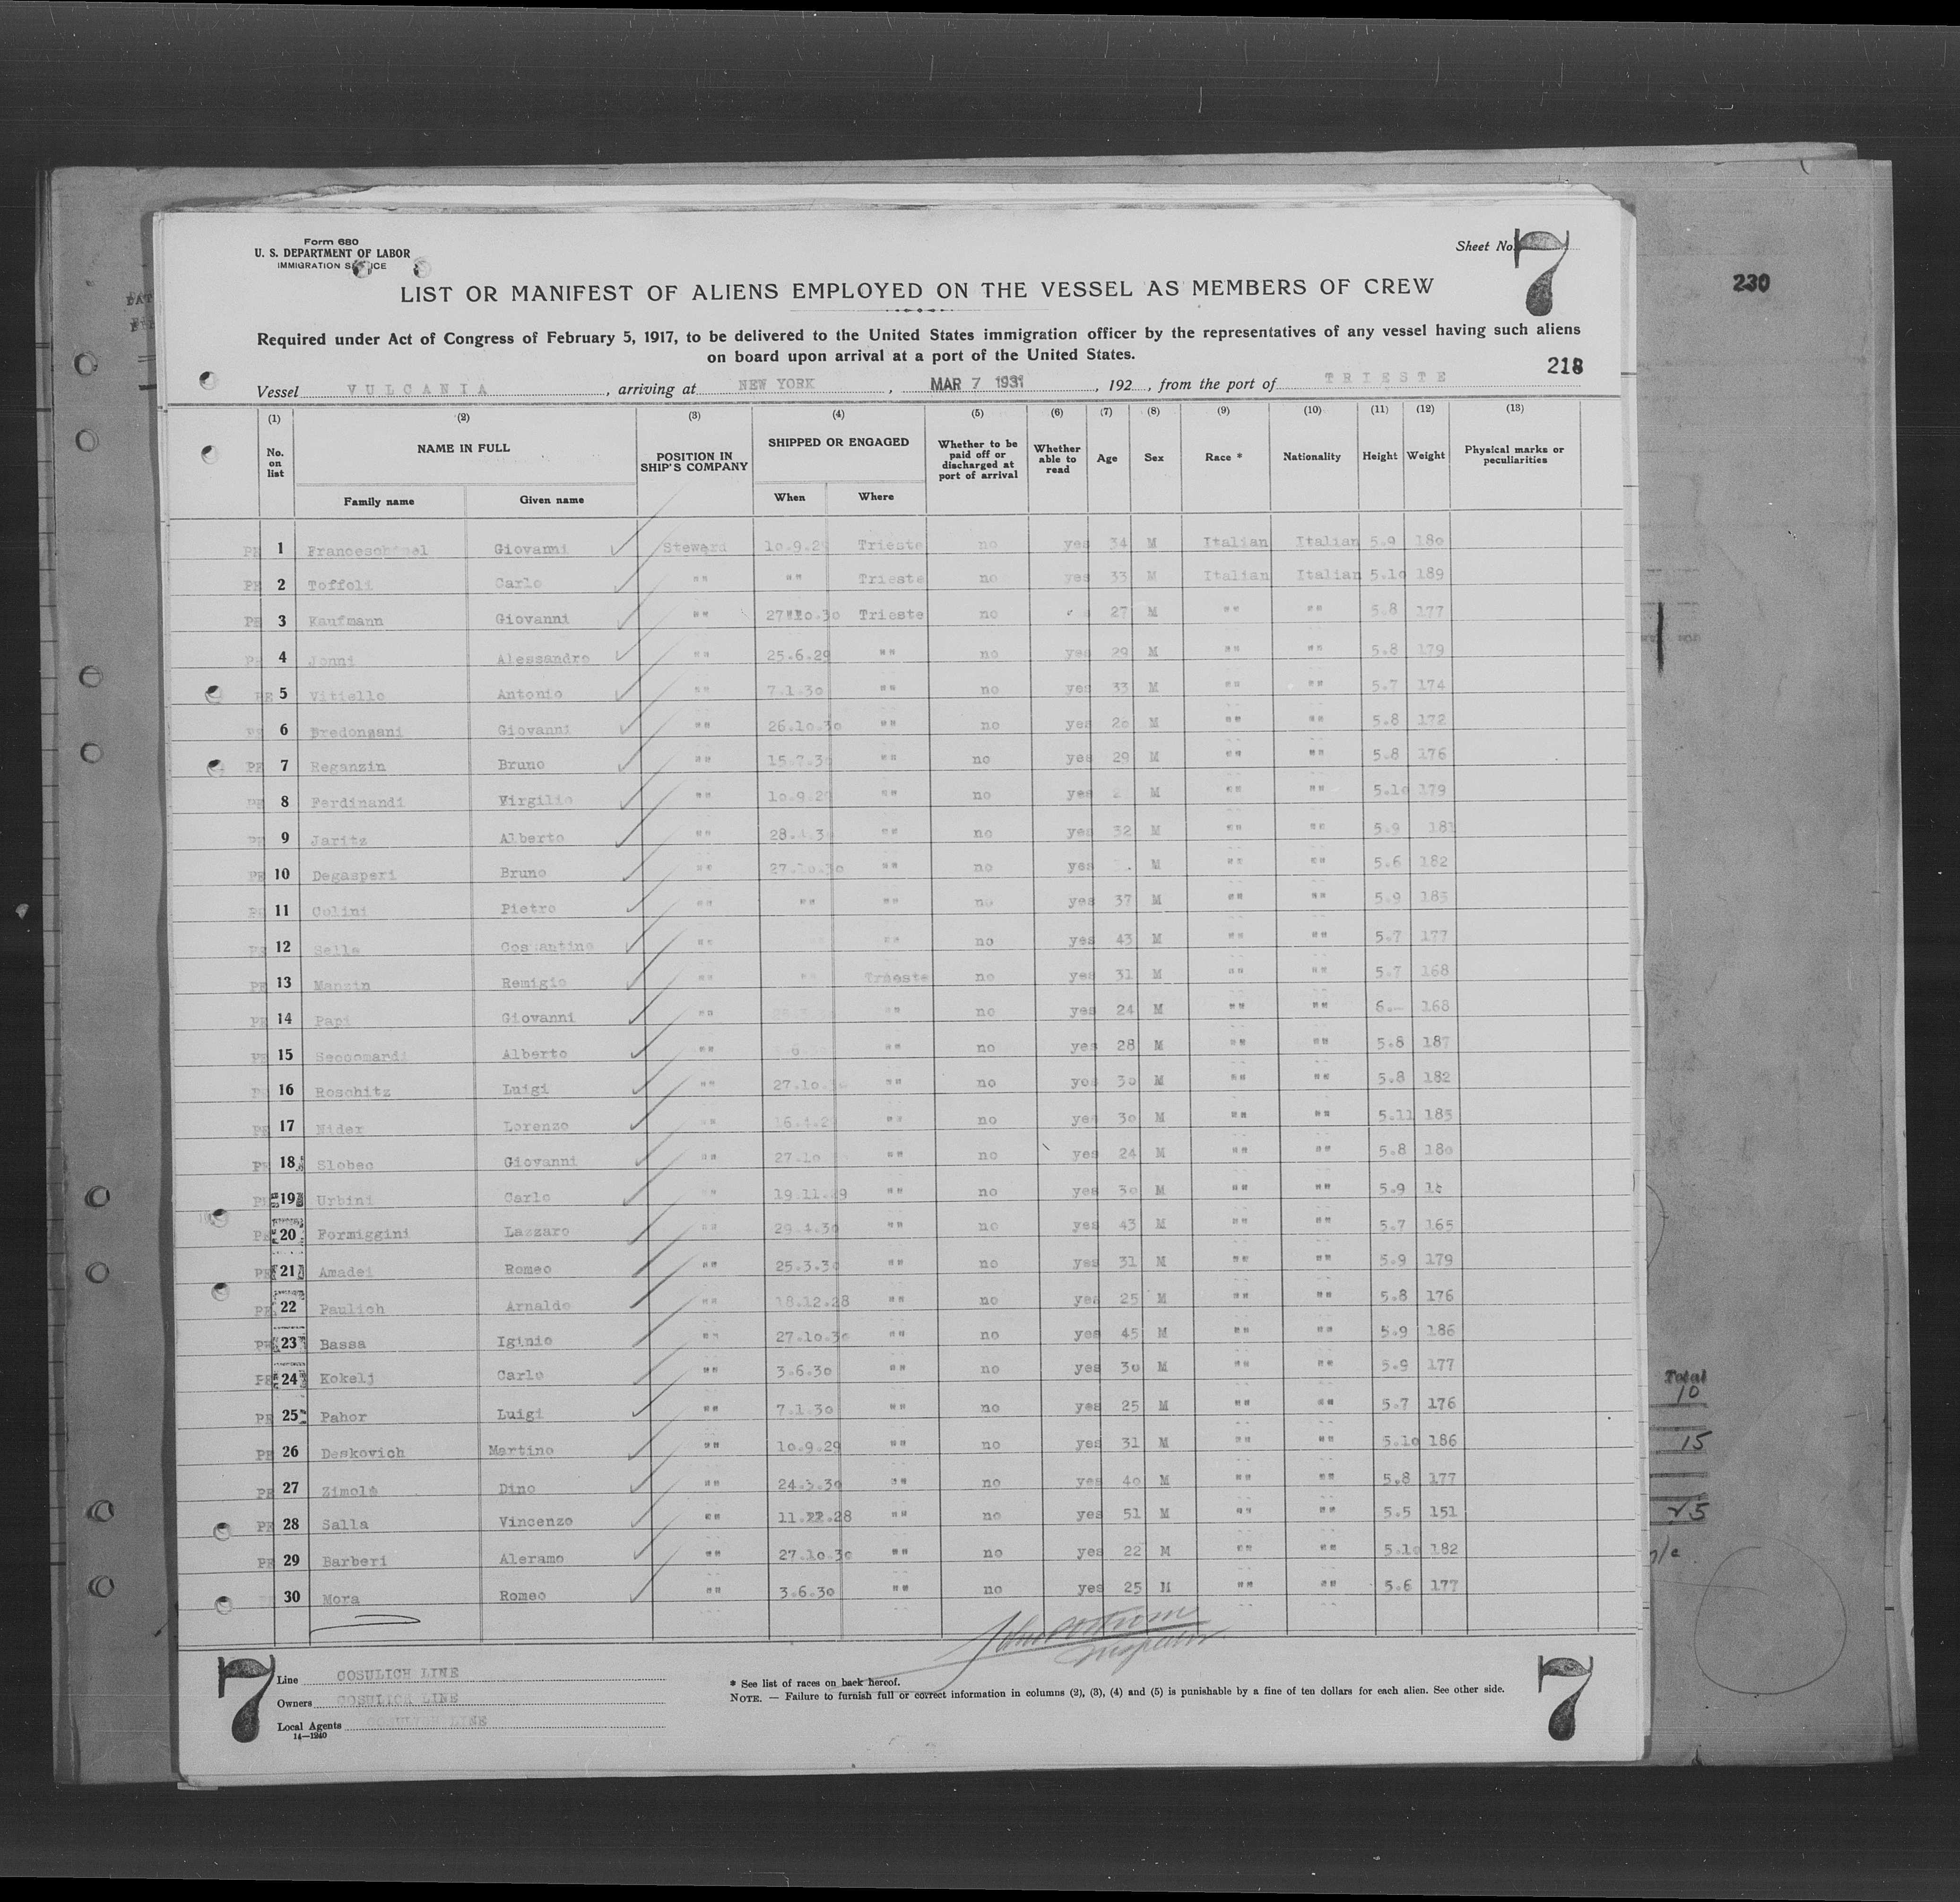 Form 680
U. S. DEPARTMENT OF LABOR
IMMIGRATION
Sheet No. 7
LIST OR MANIFEST OF ALIENS EMPLOYED ON THE VESSEL AS MEMBERS OF CREW
230
Required under Act of Congress of February 5, 1917, to be delivered to the United States immigration officer by the representatives of any vessel having such aliens
on board upon arrival at a port of the United States.
218
Vessel VULCANIA, arriving at NEW YORK, MAR 7 1931, 192, from the port of TRIESTE
(1) (2) (3) (4) (5) (6) (7) (8) (9) (10) (11) (12) (13)
No. on list NAME IN FULL POSITION IN SHIP'S COMPANY SHIPPED OR ENGAGED Whether to be paid off or discharged at port of arrival Whether able to read Age Sex Race * Nationality Height Weight Physical marks or peculiarities
Family name Given name When Where
PE 1 Giovanni Steward Trieste no yes 34 M Italian Italian 5.9 180
PE 2 Toffoli Carlo "" "" Trieste no yes 33 M Italian Italian 5.10 189
PE 3 Kaufmann Giovanni "" Trieste no 27 M "" "" 5.8 177
PE 4 Jonni Alessandro "" 25.6.29 "" no yes 29 M "" "" 5.8 179
PE 5 Vitiello Antonio "" 7.1.30 "" no yes 33 M "" "" 5.7 174
PE 6 Giovanni "" 26.10.30 "" no yes 20 M "" "" 5.8 172
PE 7 Reganzin Bruno "" "" no yes 29 M "" "" 5.8 176
PE 8 Ferdinandi Virgilio "" "" no yes M "" "" 5.10 179
PE 9 Jaritz Alberto "" "" no yes 32 M "" "" 5.9 181
PE 10 Degasperi Bruno "" 27.10.30 "" no yes M "" "" 5.6 182
PE 11 Colini Pietro "" "" "" no yes 37 M "" "" 5.9
PE 12 Costantino "" "" no yes 43 M "" "" 5.7 177
PE 13 Manzin Remigio "" "" Trieste no yes 31 M "" "" 5.7 168
PE 14 Papi Giovanni "" "" no yes 24 M "" "" 6.— 168
PE 15 Alberto "" "" no yes 28 M "" "" 5.8 187
PE 16 Roschitz Luigi "" "" no yes 30 M "" "" 5.8 182
PE 17 Nider Lorenzo "" "" no yes 30 M "" "" 5.11 185
PE 18 Slobec Giovanni "" "" no yes 24 M "" "" 5.8 180
PE 19 Urbini Carlo "" 19.11.29 "" no yes 30 M "" "" 5.9
PE 20 Formiggini Lazzaro "" 29.4.30 "" no yes 43 M "" "" 5.7 165
PE 21 Amadei Romeo "" 25.3.30 "" no yes 31 M "" "" 5.9 179
PE 22 Paulich Arnaldo "" 18.12.28 "" no yes 25 M "" "" 5.8 176
PE 23 Bassa Iginio "" 27.10.30 "" no yes 45 M "" "" 5.9 186
PE 24 Kokelj Carlo "" 3.6.30 "" no yes 30 M "" "" 5.9 177
PE 25 Pahor Luigi "" 7.1.30 "" no yes 25 M "" "" 5.7 176
PE 26 Deskovich Martino "" 10.9.29 "" no yes 31 M "" "" 5.10 186
PE 27 Zimolo Dino "" "" no yes 40 M "" "" 5.8 177
PE 28 Salla Vincenzo "" "" no yes 51 M "" "" 5.5 151
PE 29 Barberi Aleramo "" 27.10.30 "" no yes 22 M "" "" 5.10 182
30 Mora Romeo "" 3.6.30 "" no yes 25 M "" "" 5.6 177
Total
10
15
25
Inspector
7
Line COSULICH LINE
Owners COSULICH LINE
Local Agents COSULICH LINE
14—1240
* See list of races on back hereof.
NOTE. — Failure to furnish full or correct information in columns (2), (3), (4) and (5) is punishable by a fine of ten dollars for each alien. See other side.
7